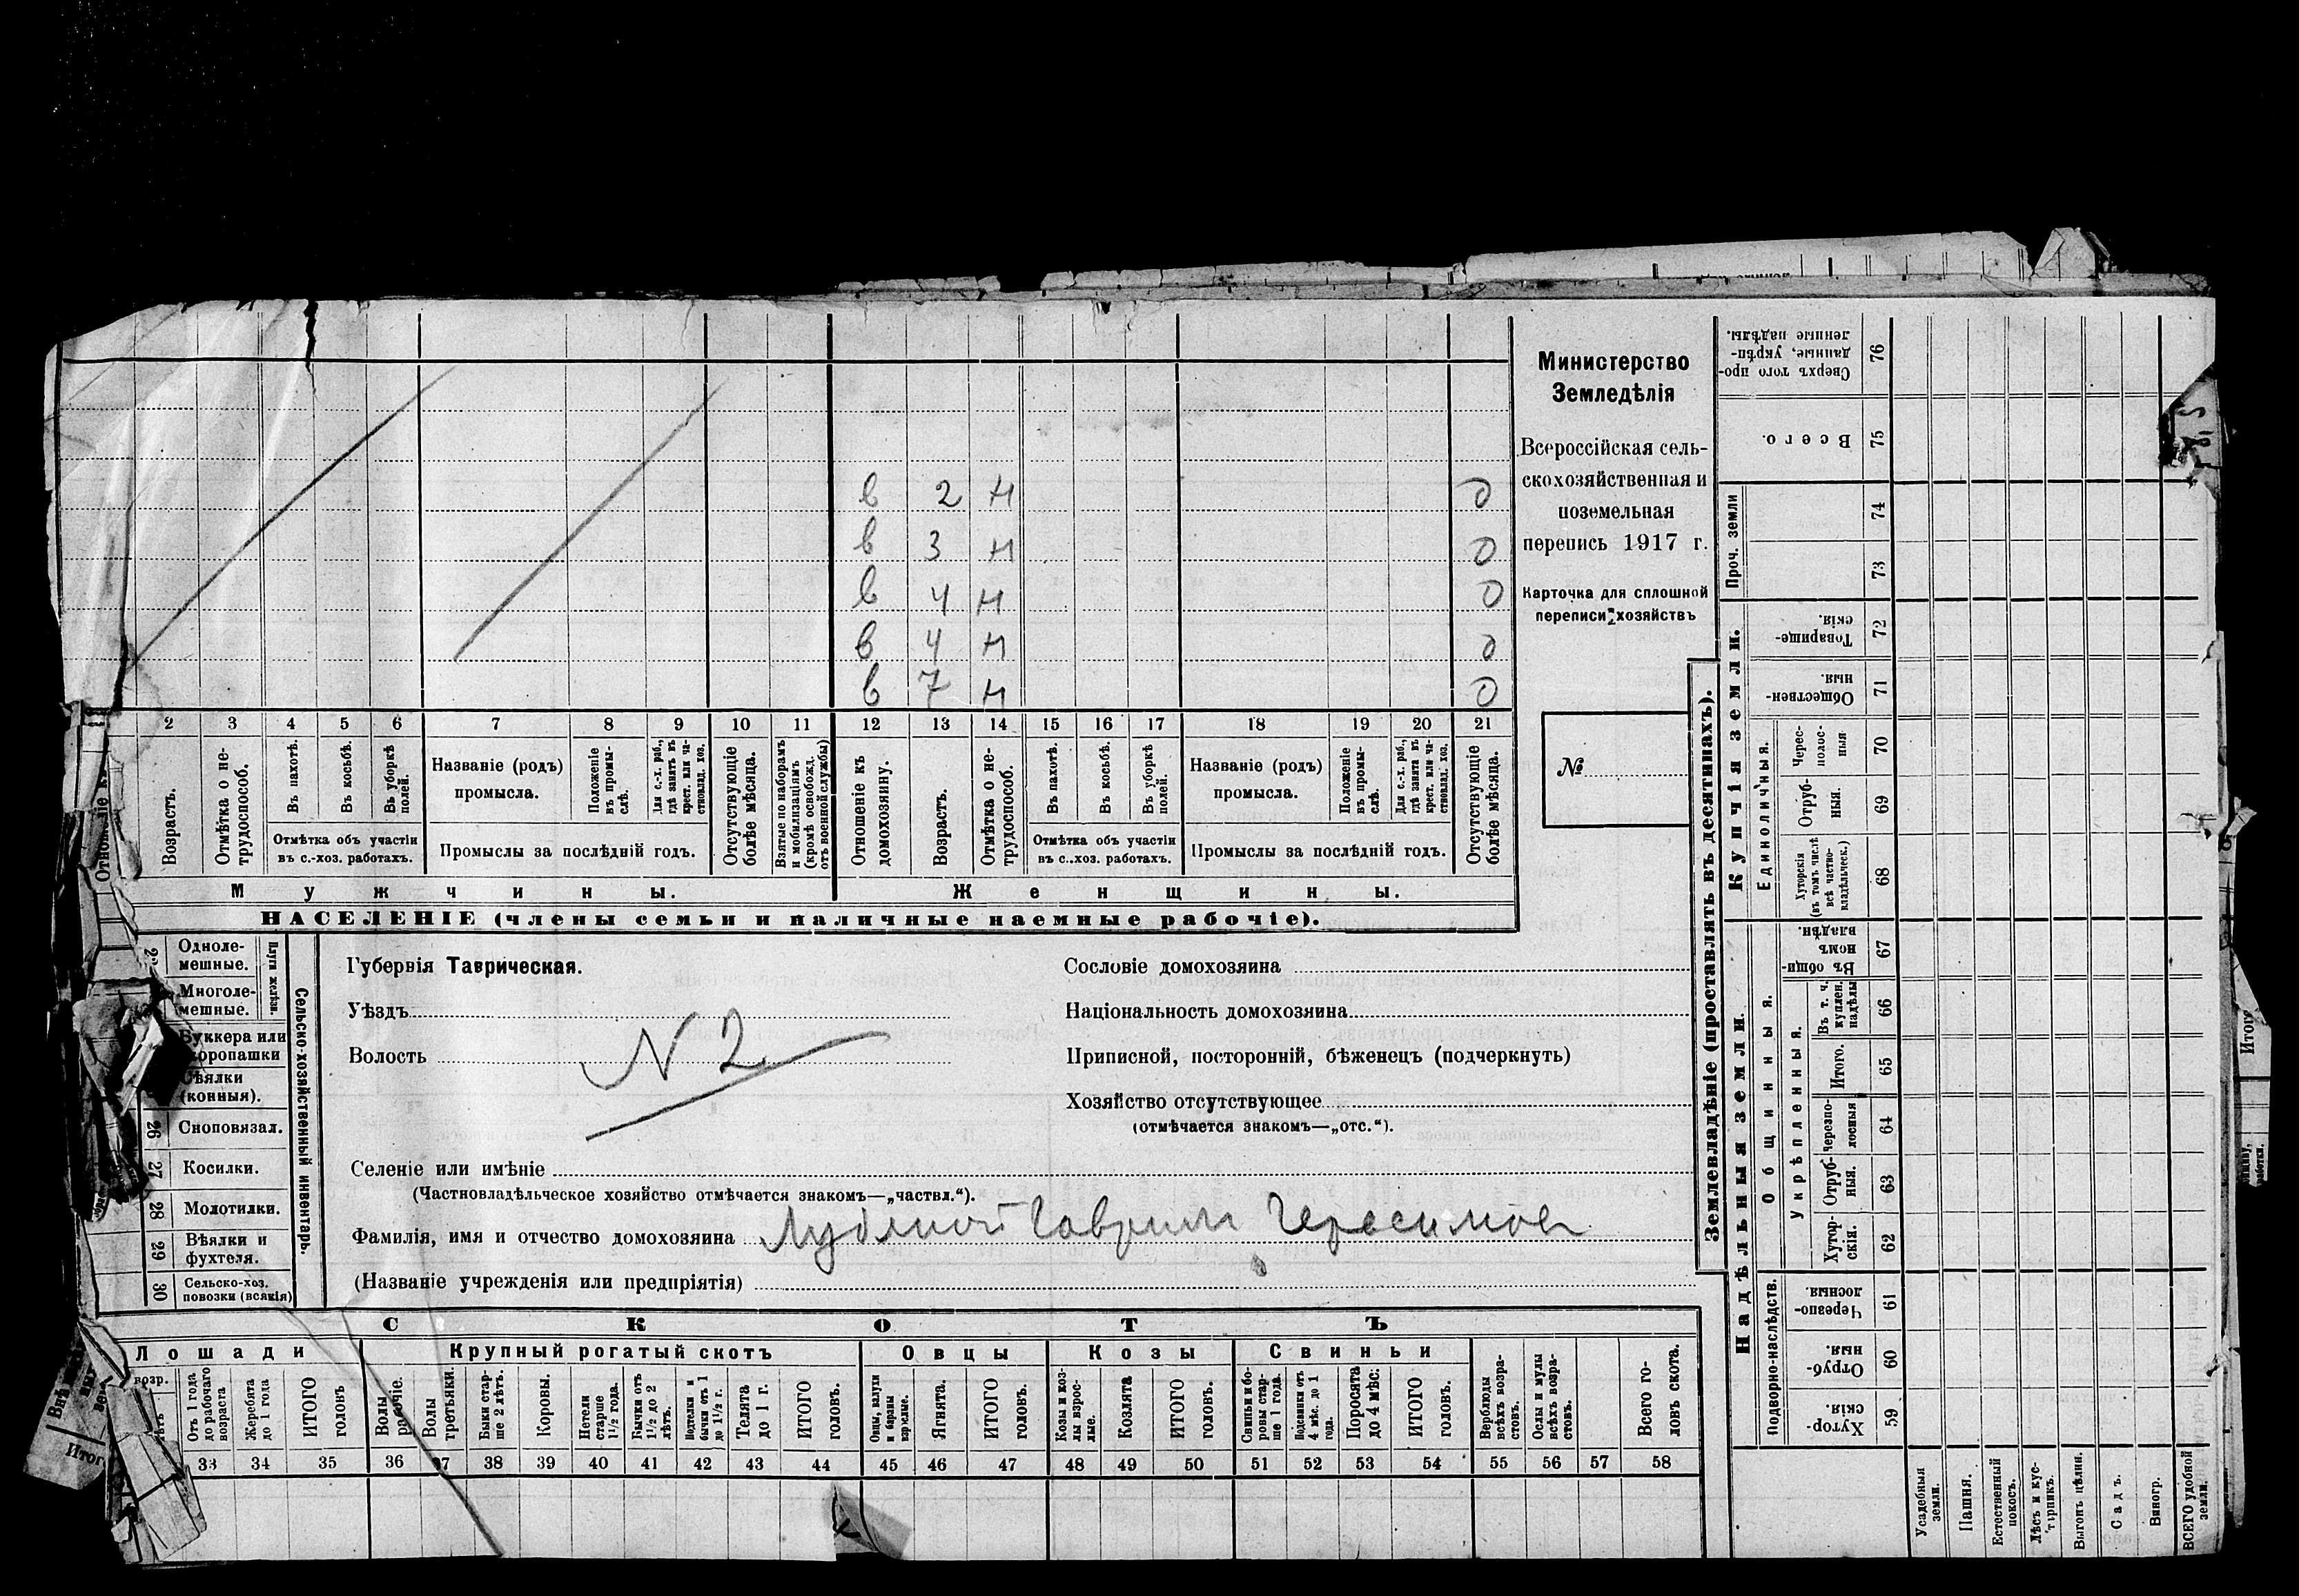 в 2 н 0
в 3 н 0
в 4 н 0
в 4 н 0
в 7 н 0
2 3 4 5 6 7 8 9 10 11 12 13 14 15 16 17 18 19 20 21
Возрастъ.
Отмѣтка о не-
трудоспособ.
Въ пахотѣ.
Въ косьбѣ.
Въ уборкѣ
полей.
Отмѣтка объ участіи
въ с.-хоз. работахъ.
Названіе (родъ)
промысла.
Положеніе
въ промы-
слѣ.
Для с.-х. раб.,
гдѣ занятъ въ
крест. или ча-
стновлад. хоз.
Промыслы за послѣдній годъ.
Отсутствующіе
болѣе мѣсяца.
Взятые по наборамъ
и мобилизаціямъ
(кромѣ освобожд.
отъ военной службы)
Отношеніе къ
домохозяину.
Возрастъ.
Отмѣтка о не-
трудоспособ.
Въ пахотѣ.
Въ косьбѣ.
Въ уборкѣ
полей.
Отмѣтка объ участіи
въ с..хоз. работахъ.
Названіе (родъ)
промысла.
Положеніе
въ промы-
слѣ.
Для с.-х. раб.,
гдѣ занята въ
крест. или ча-
стновлад. хоз.
Промыслы за послѣдній годъ.
Отсутствующіе
болѣе мѣсяца.
Мужчины.
Женщины.
НАСЕЛЕНІЕ (члены семьи и наличные наемные рабочіе).
Министерство
Земледѣлія
Всероссійская сель-
скохозяйственная и
поземельная
перепись 1917 г.
Карточка для сплошной
переписи хозяйствъ
№
Одноле-
мешные.
Многоле-
мешные.
Плуги желѣзн.
Буккера или
Сѣялки
(конныя).
26 Сноповязал.
27 Косилки.
28 Молотилки.
29 Вѣялки и
фухтеля.
30 Сельско-хоз.
повозки (всякія)
Сельско-хозяйственный инвентарь.
Губернія Таврическая.
Уѣздъ
Волость
N 2
Сословіе домохозяина
Національность домохозяина
Приписной, посторонній, бѣженецъ (подчеркнуть)
Хозяйство отсутствующее
(отмѣчается знакомъ—„отс.“).
Селеніе или имѣніе
(Частновладѣльческое хозяйство отмѣчается знакомъ—„частвл.“).
Фамилія, имя и отчество домохозяина Гаврила Герасимов
(Названіе учрежденія или предпріятія)
СКОТЪ
Лошади
Крупный рогатый скотъ
Овцы
Козы
Свиньи
возр.
Отъ 1 года
до рабочаго
возраста
Жеребята
до 1 года
ИТОГО
головъ
Волы
рабочіе.
Волы
третьяки.
Быки стар-
ше 2 лѣтъ.
Коровы.
Нетели
старше
1½ года.
Бычки отъ
1½ до 2
лѣтъ.
Подтелки и
бычки отъ 1
до 1½ г.
Телята
до 1 г.
ИТОГО
головъ.
Овцы, валухи
и бараны
взрослые.
Ягнята.
ИТОГО
головъ.
Козы и коз-
лы взрос-
лые.
Козлята
ИТОГО
головъ.
Свиньи и бо-
ровы стар-
ше 1 года.
Подсвинки отъ
4 мѣс. до 1
года.
Поросята
до 4 мѣс.
ИТОГО
головъ.
Верблюды
всѣхъ возра-
стовъ.
Ослы и мулы
всѣхъ возра-
стовъ.
Всего го-
ловъ скота.
33 34 35 36 37 38 39 40 41 42 43 44 45 46 47 48 49 50 51 52 53 54 55 56 57 58
Землевладѣніе (проставлять въ десятинахъ).
Купчія земли.
Надѣльныя земли.
Проч. земли
Единоличныя.
Общинныя.
Укрѣпленныя.
Подворно-наслѣдств.
Сверхъ того про-
данные, укрѣп-
ленные надѣлы. 76
Всего. 75
74
73
Товарище-
скія. 72
Обществен-
ныя. 71
Черес-
полос-
ныя 70
Отруб-
ныя. 69
Хуторскія
(въ томъ числѣ
всѣ частно-
владѣльческ.) 68
Въ общин-
номъ
владѣн. 67
Въ т. ч.
куплен.
надѣлы 66
Итого. 65
Черезпо-
лосныя 64
Отруб-
ныя. 63
Хутор-
скія. 62
Черезпо-
лосныя. 61
Отруб-
ныя. 60
Хутор-
скія. 59
Усадебныя
земли.
Пашня.
Естественный
покосъ.
Лѣсъ и кус-
тарникъ.
Выгонъ цѣлин.
Садъ.
Виногр.
ВСЕГО удобной
земли.
Итого